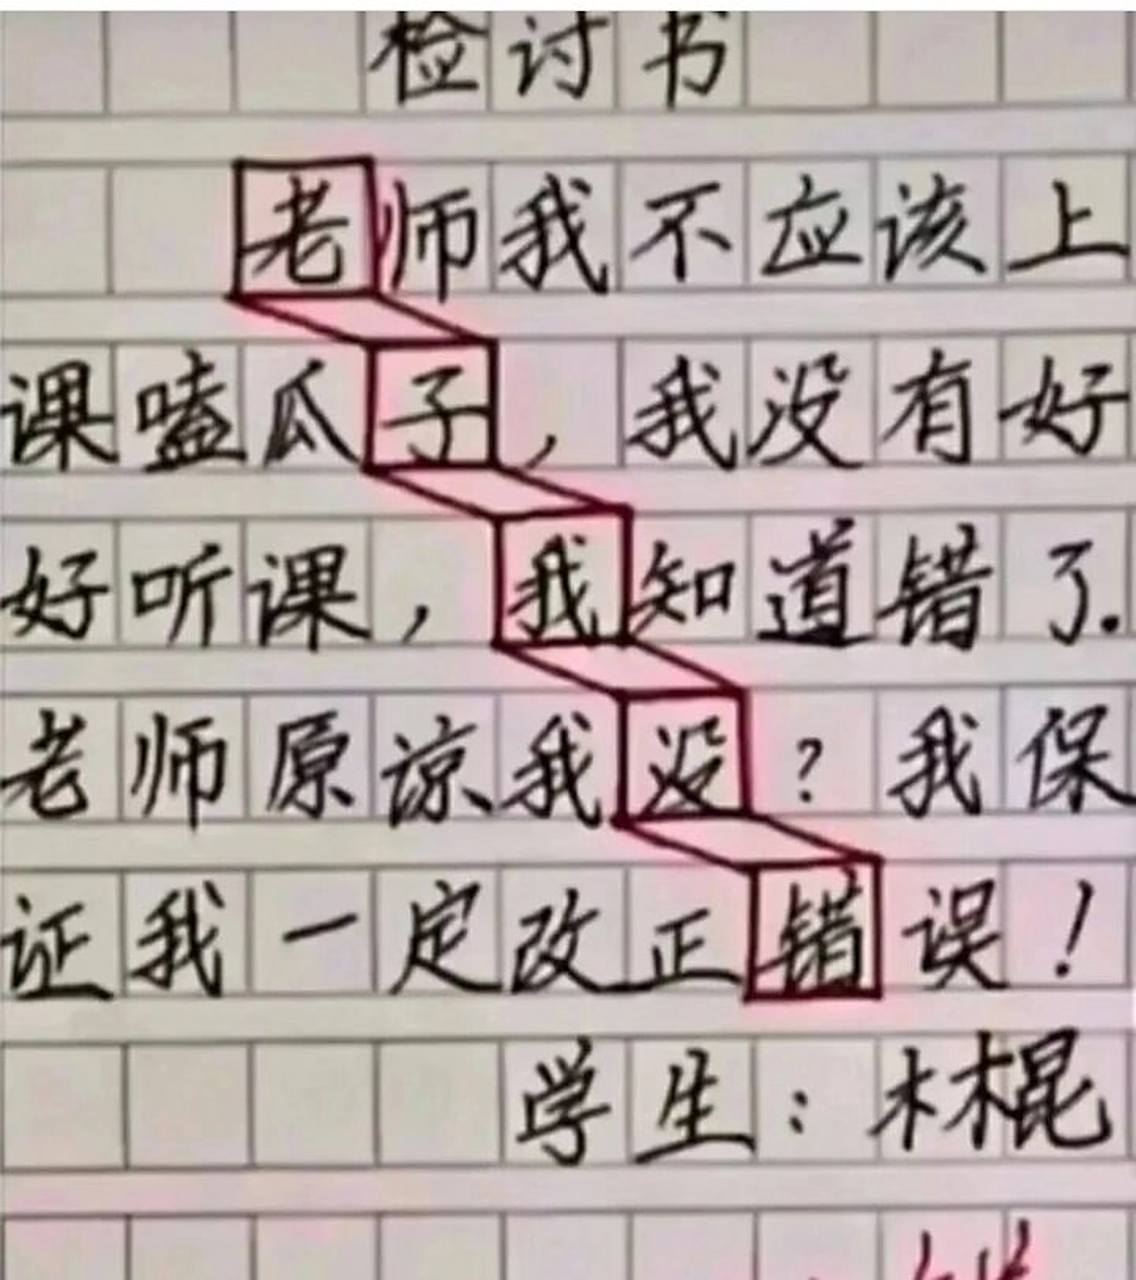 检讨书
老师我不应该上
课嗑瓜子，我没有好
好听课，我知道错了.
老师原谅我没？我保
证我一定改正错误！
学生：林棍